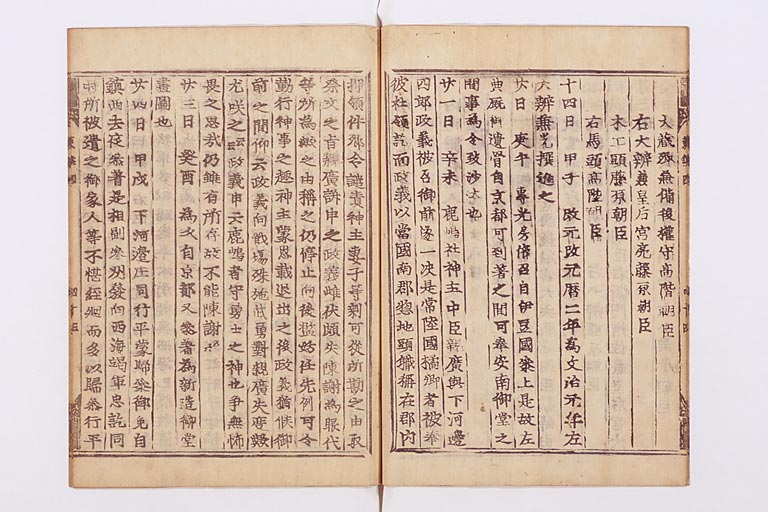 大藏卿兼備後權守高階朝臣
右大辨兼皇后宮亮藤原朝臣
木工頭藤原朝臣
右馬頭高階朝臣
十四日 甲子 改元改元暦二年為文治元年左
大辨兼光撰進之
廿日 庚午 專光房依召自伊豆國參上是故左
典厩御遺骨自京都可到著之間可奉安南御堂之
間事為令致沙汰也
廿一日 辛未 鹿嶋社神主中臣親廣與下河邊
四郎政義被召御前遂一决是常陸國橘郷者被奉
彼社領訖而政義以當國南郡惣地頭軄稱在郡内
押領件郷令譴責神主妻子等剩可從所勘之由取
祭文之旨親廣訴申之政義雌伏頗失陳謝為眼代
等所為歟之由稱之仍停止向後濫妨任先例可令
勤行神事之趣神主蒙恩載退出之後政義猶候御
前之間仰云政義向戰塲殊施武勇對親廣失度歟
尤咲之云云政義申云鹿嶋者守勇士之神也爭無怖
畏之思哉仍雖有所存故不能陳謝云云
廿三日 癸酉 為文自京都又參著為新造御堂
畫圖也
廿四日 甲戌 右下河邊庄司行平蒙歸參御免自
鎮西去夜參著是相副參州發向西海竭軍忠訖同
時所被遣之御家人等不堪經廻而多以歸參行平